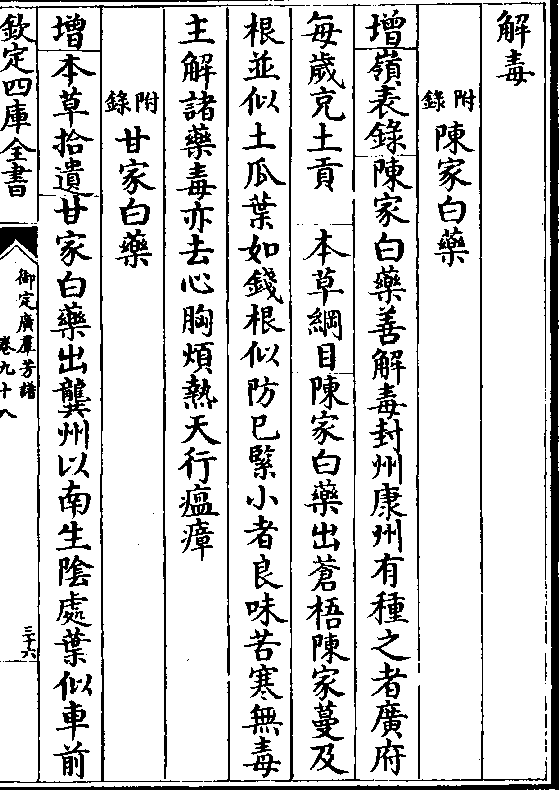 解毒
附錄 陳家白藥
增嶺表錄陳家白藥善解毒封州康州有種之者廣府
每歲充土貢 本草綱目陳家白藥出蒼梧陳家蔓及
根並似土瓜葉如錢根似防已緊小者良味苦寒無毒
主解諸藥毒亦去心胸煩熱天行瘟瘴
附錄 甘家白藥
增本草拾遺甘家白藥出龔州以南生陰處葉似車前
欽定四庫全書
御定廣羣芳譜
卷九十八
三十六